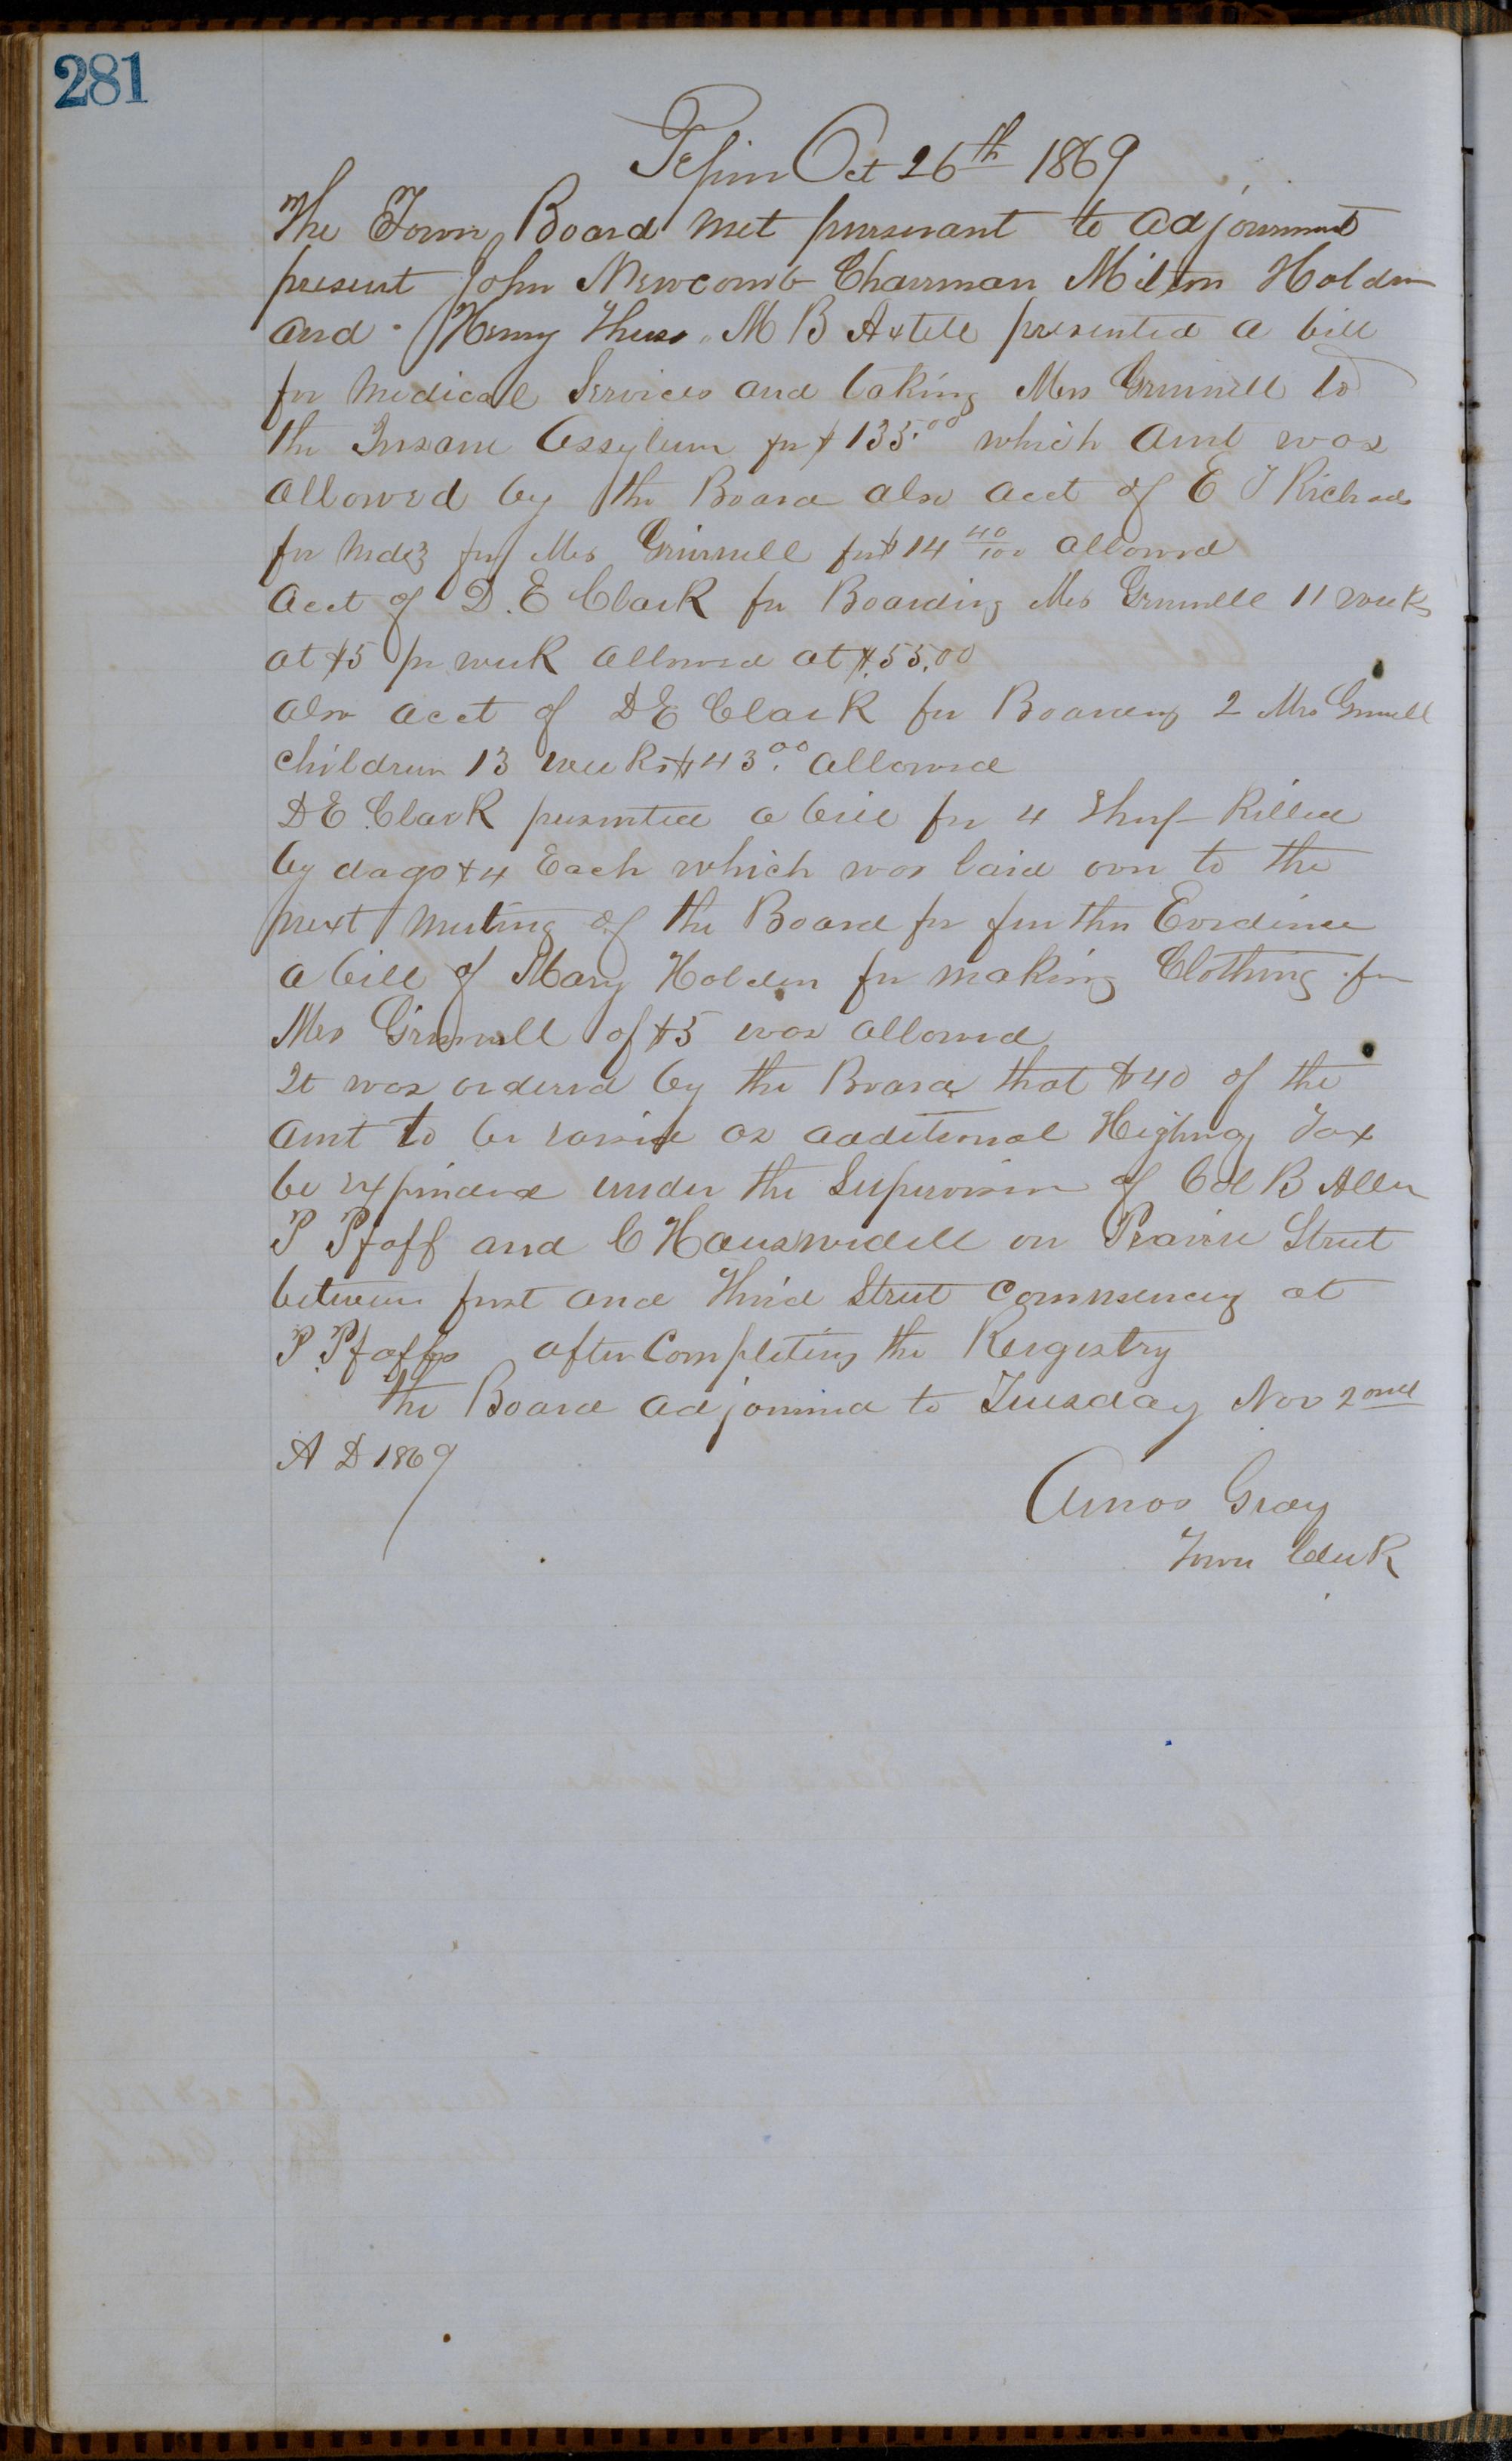 281
Pepin Oct 26th 1869
The Town Board met pursuant to adjournment
present John Newcomb Chairman Milton Holden
and Henry M B Axtell presented a bill
for medical Services and taking Mrs Grinnell to
the Insane Assylum for $135.00 which amt was
allowed by the Board also acct of E T Richards
for Mdz for Mrs Grinnell for $14 40/100 allowed
acct of D. E Clark for Boarding Mrs Grinnell 11 weeks
at $5 pr week allowed at $55.00
also acct of D E Clark for Boarding 2 Mrs Grinnell
children 13 weeks $43.00 allowed
D E Clark presented a bill for 4 Sheep Killed
by dogs $4 Each which was laid over to the
next meeting of the Board for further Evidence
a bill of Mary Holden for making Clothing for
Mrs Grinnell of $5 was allowed
It was ordered by the Board that $40 of the
amt to be raised as additional Highway Tax
be expended under the Supervision of Col B Allen
P Pfaff and C on Prairie Street
between first and Third Street commencing at
P Pfaffs after Completing the Reigestry
the Board adjourned to Tuesday Nov 2ond
A D 1869
Amos Gray
Town Clerk